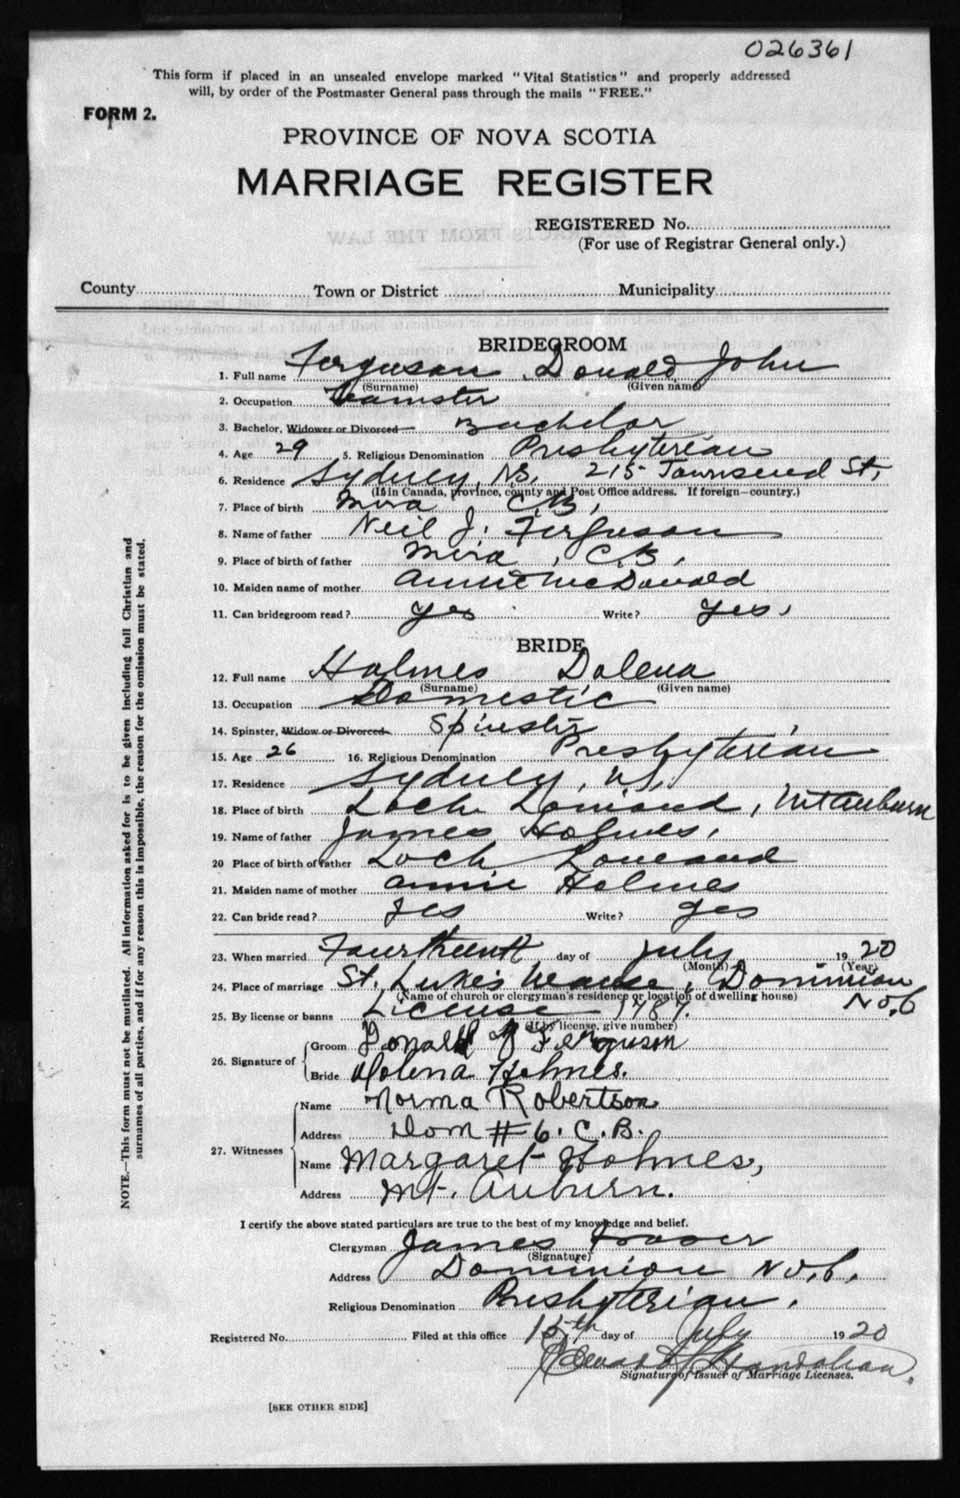 026361
This form if placed in an unsealed envelope marked "Vital Statistics" and properly addressed
will, by order of the Postmaster General pass through the mails "FREE."
FORM 2.
PROVINCE OF NOVA SCOTIA
MARRIAGE REGISTER
REGISTERED No.
(For use of Registrar General only.)
County Town or District Municipality
BRIDEGROOM
1. Full name Ferguson Donald John
(Surname) (Given name)
2. Occupation Teamster
3. Bachelor, Widower or Divorced Bachelor
4. Age 29 5. Religious Denomination Presbyterian
6. Residence Sydney, N.S. 215 Townsend St,
(If in Canada, province, county and Post Office address. If foreign—country.)
7. Place of birth Mira C.B,
8. Name of father Neil J. Ferguson
9. Place of birth of father Mira, C.B,
10. Maiden name of mother Annie McDonald
11. Can bridegroom read? yes Write? yes,
BRIDE
12. Full name Holmes Dolena
(Surname) (Given name)
13. Occupation Domestic
14. Spinster, Widow or Divorced Spinster
15. Age 26 16. Religious Denomination Presbyterian
17. Residence Sydney, N.S.
18. Place of birth Loch Lomond, Mt Auburn
19. Name of father James Holmes,
20 Place of birth of father Loch Lomond
21. Maiden name of mother Annie Holmes
22. Can bride read? yes Write? yes
23. When married Fourteenth day of July 1920
(Month) (Year)
24. Place of marriage St. Luke's Manse, Dominion
(Name of church or clergyman's residence or location of dwelling house) No, 6
25. By license or banns License
(If by license, give number)
26. Signature of Groom Donald J Ferguson
Bride Dolena Holmes.
27. Witnesses Name Norma Robertson
Address Dom # 6. C.B.
Name Margaret Holmes,
Address Mt. Auburn.
I certify the above stated particulars are true to the best of my knowledge and belief.
Clergyman James Fraser
(Signature)
Address Dominion No, 6,
Religious Denomination Presbyterian.
Registered No. Filed at this office 15th day of July 1920
Signature of Issuer of Marriage Licenses.
[SEE OTHER SIDE]
NOTE.—This form must not be mutilated. All information asked for is to be given including full Christian and
surnames of all parties, and if for any reason this is impossible, the reason for the omission must be stated.